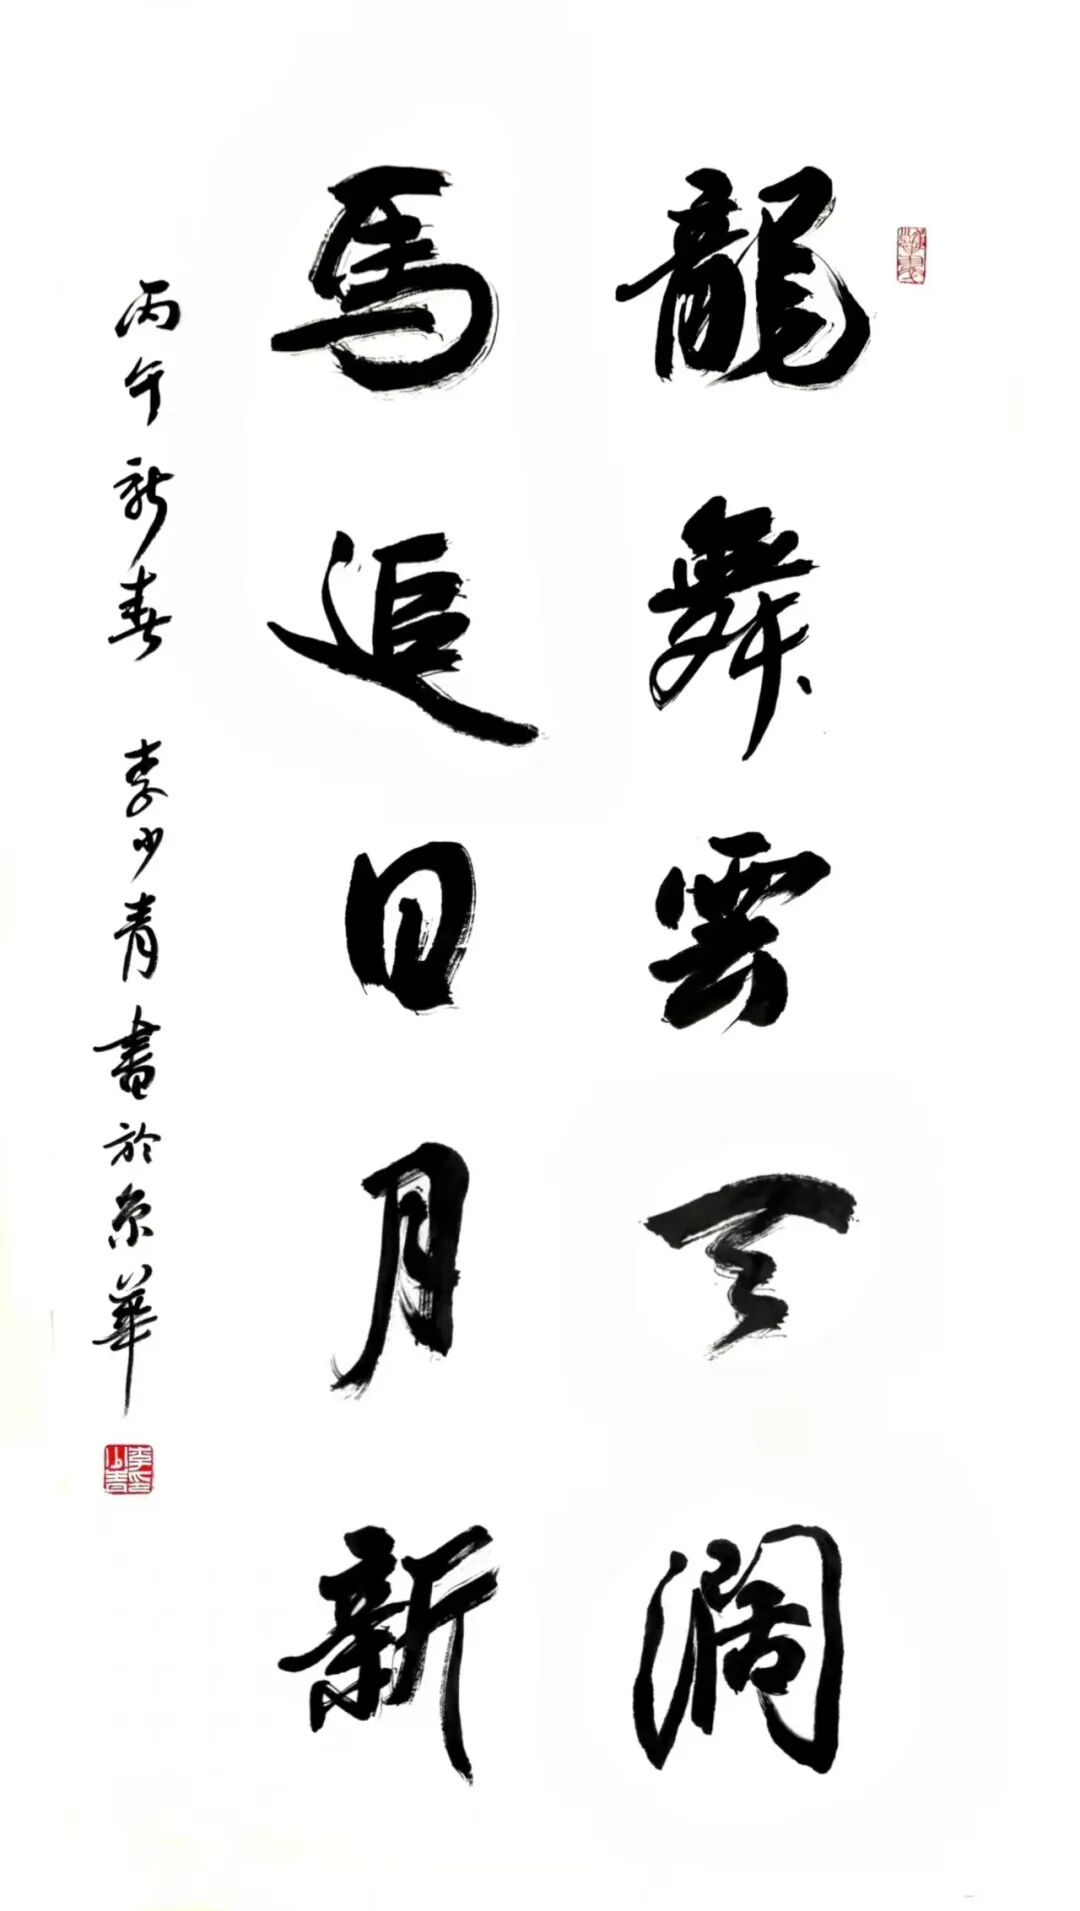 龍舞雲天阔
馬追日月新
丙午新春 李少青書於京華
李少青印